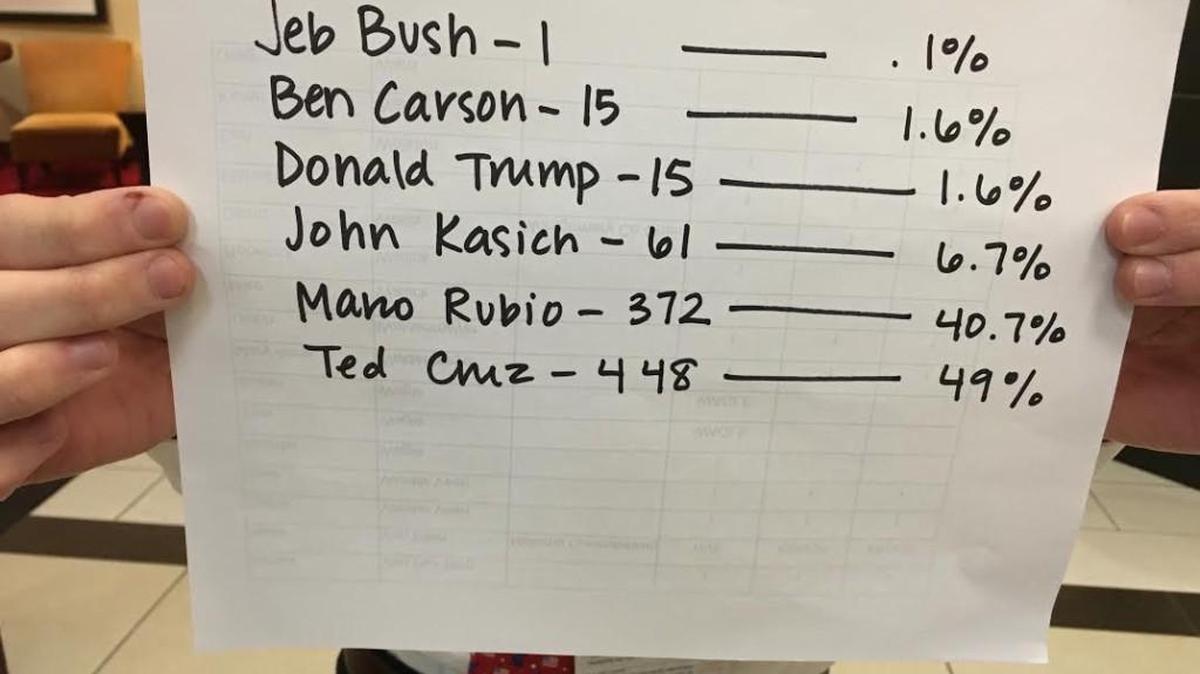 Jeb Bush - 1 —— .1%
Ben Carson - 15 —— 1.6%
Donald Trump - 15 —— 1.6%
John Kasich - 61 —— 6.7%
Marco Rubio - 372 —— 40.7%
Ted Cruz - 448 —— 49%